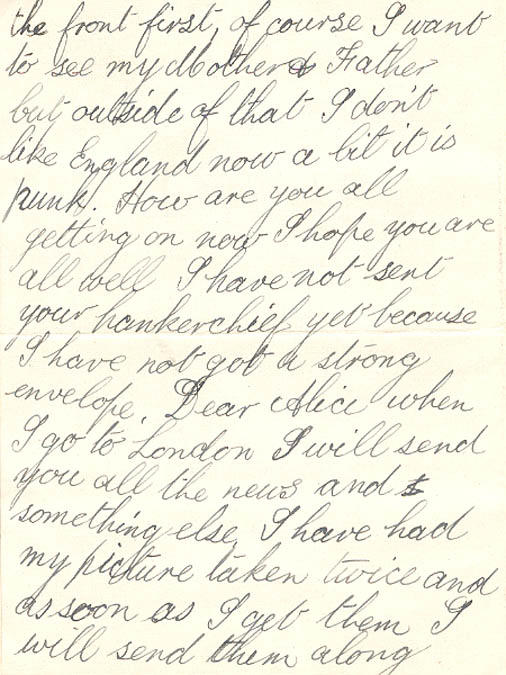 the front first, of course I want
to see my Mother & Father
but outside of that I don't
like England now a bit it is
punk. How are you all
getting on now I hope you are
all well I have not sent
your hankerchief yet because
I have not got a strong
envelope. Dear Alice when
I go to London I will send
you all the news and
something else, I have had
my picture taken twice and
as soon as I get them I
will send them along